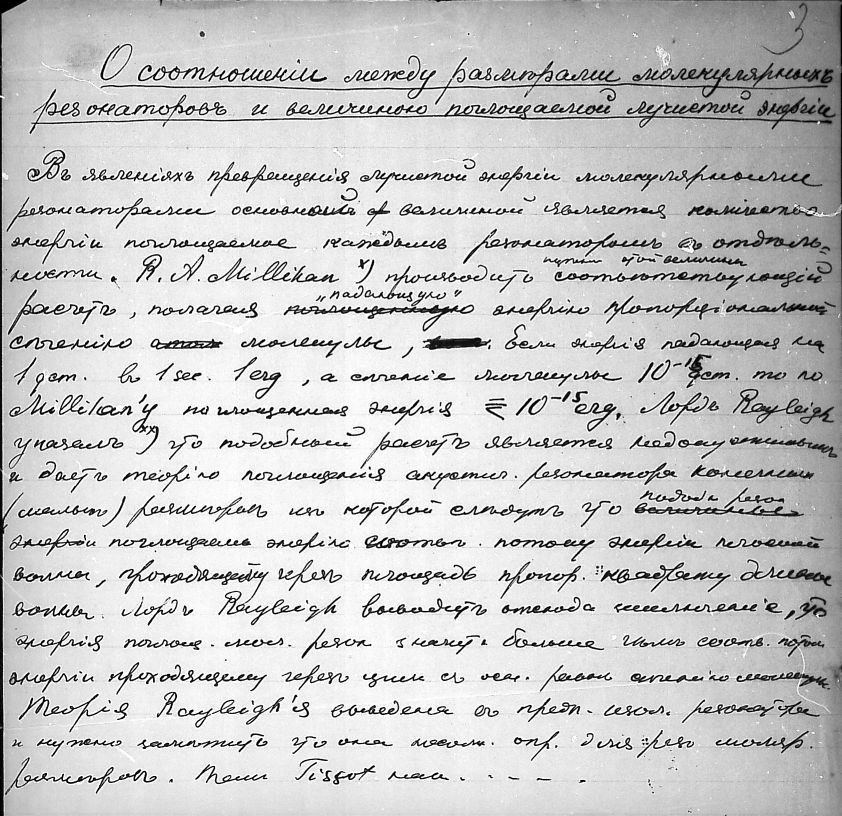 3
О соотношеніи между размѣрами молекулярныхъ
резонаторовъ и величиною поглощаемой лучистой энергіи
Въ явленіяхъ превращенія лучистой энергіи молекулярными
резонаторами основной величиной является количество
энергіи поглощаемое каждымъ резонаторомъ въ отдѣль=
ности. R. A. Millikan x) производитъ путемъ этой величины соотвѣтствующій
расчетъ, полагая "падающую" поглощенную энергію пропорціональной
сѣченію атом молекулы, . Если энергія падающая на
1 qcm. въ 1 sec. 1 erg, а сѣченіе молекулы 10⁻¹⁵ qcm. то по
Millikan'у поглощенная энергія ≤ 10⁻¹⁵ erg. Лордъ Rayleigh
указалъ xx) что подобный расчетъ является
и даетъ теорію поглощенія акустич. резонатора конечныхъ
(малыхъ) размѣровъ изъ которой слѣдуетъ что подобн. резон
энергіи поглощаетъ энергію соотвѣт. потоку энергіи плоской
волны, проходящему черезъ площадь пропор. квадрату длины
волны. Лордъ Rayleigh выводитъ отсюда заключеніе, что
энергія поглощ. мол. резон значит. больше чѣмъ соотв. поток
энергіи проходящему черезъ цил. съ осн. равн. сѣченію молекул.
Теорія Rayleigh'я выведена въ предп. изол. резонатора
и нужно замѣтить что она опр. для рез. моляр.
размѣровъ. Tissot